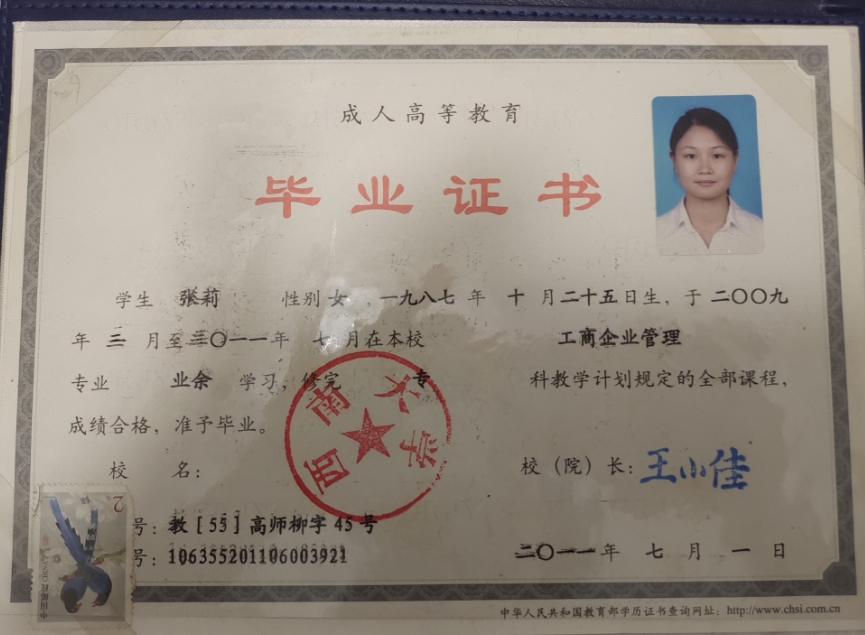 成人高等教育
毕业证书
学生 张莉 性别 女 ,一九八七 年 十 月二十五日生，于 二〇〇九
年 三 月至二〇一一年 七 月在本校 工商企业管理
专业 业余 学习，修完 专 科教学计划规定的全部课程，
成绩合格，准予毕业。
西南大学
校 名： 校（院）长：王小佳
号：教［55］高师柳字 45 号
号：106355201106003921 二〇一一年 七 月 一 日
中华人民共和国教育部学历证书查询网址：http://www.chsi.com.cn